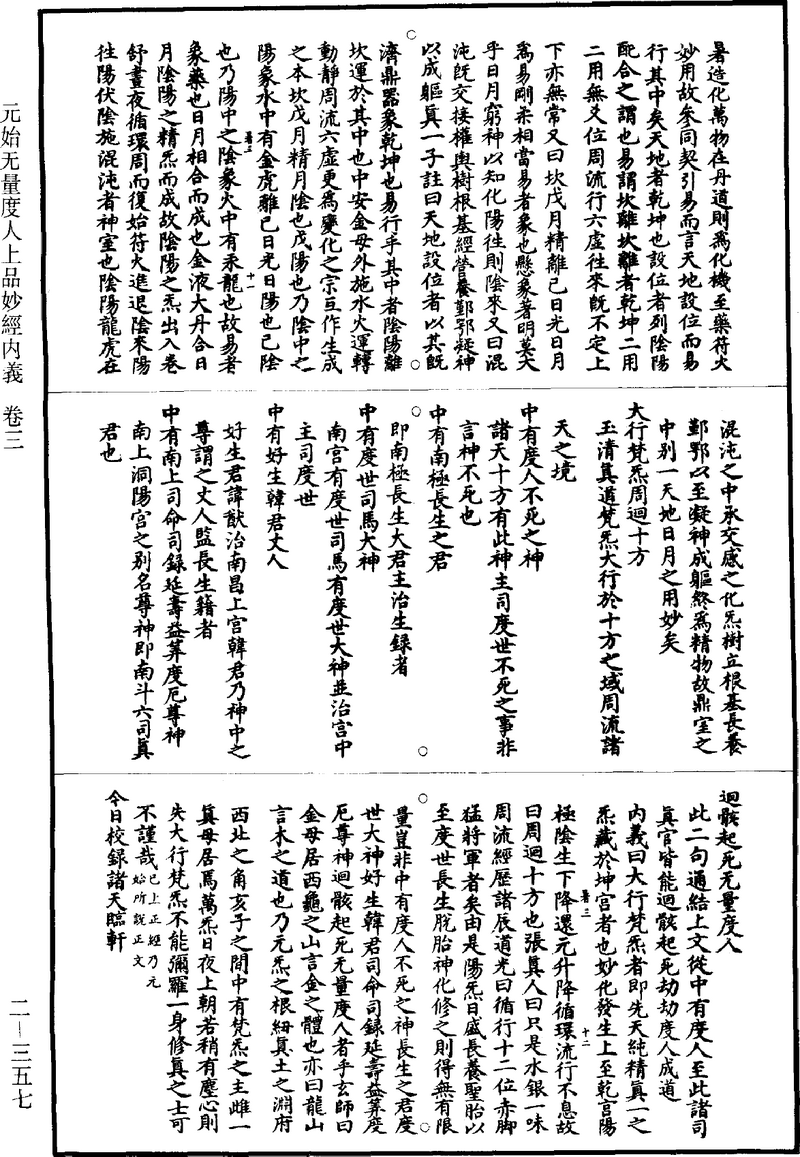 暑造化萬物在丹道則爲化機至藥符火
妙用故參同契引易而言天地設位而易
行其中矣天地者乾坤也設位者列陰陽
配合之謂也易謂坎離坎離者乾坤二用
二用無爻位周流行六虛往來旣不定上
下亦無常又曰坎戊月精離己日光日月
爲易剛柔相當易者象也懸象著明莫大
乎日月窮神以知化陽往則陰來又曰混
沌旣交接權輿樹根基經營養鄞鄂凝神
以成軀眞一子註曰天地設位者以其旣
濟鼎器象乾坤也易行乎其中者陰陽離
坎運於其中也中安金母外施水火運轉
動靜周流六虛更爲變化之宗互作生成
之本坎戊月精月陰也戊陽也乃陰中之
陽象水中有金虎離己日光日陽也己陰
也乃陽中之陰象火中有汞龍也故易者
象藥也日月相合而成也金液大丹合日
月陰陽之精炁而成故陰陽之炁出入卷
舒晝夜循環周而復始符火進退陰來陽
往陽伏陰施混沌者神室也陰陽龍虎在
混沌之中承交感之化炁樹立根基長養
鄞鄂以至凝神成軀終爲精物故鼎室之
中別一天地日月之用妙矣
大行梵炁周迴十方
玉清眞道梵炁大行於十方之域周流諸
天之境
中有度人不死之神
諸天十方有此神主司度世不死之事非
言神不死也
中有南極長生之君
即南極長生大君主治生録者
中有度世司馬大神
南宮有度世司馬有度世大神並治宮中
主司度世
中有好生韓君丈人
好生君諱猷治南昌上宮韓君乃神中之
尊謂之丈人監長生籍者
中有南上司命司録延壽益筭度厄尊神
南上洞陽宮之別名尊神即南斗六司眞
君也
迴骸起死无量度人
此二句通結上文從中有度人至此諸司
眞官皆能迴骸起死劫劫度人成道
內義曰大行梵炁者即先天純精眞一之
炁藏於坤宮者也妙化發生上至乾宮陽
極陰生下降還元升降循環流行不息故
曰周迴十方也張眞人曰只是水銀一味
周流經歷諸辰道光曰循行十二位赤脚
猛將軍者矣由是陽炁日盛長養聖胎以
至度世長生脫胎神化修之則得無有限
量豈非中有度人不死之神長生之君度
世大神好生韓君司命司録延壽益筭度
厄尊神迴骸起死无量度人者乎玄師曰
金母居西龜之山言金之體也亦曰龍山
言木之道也乃元炁之根紐眞土之淵府
西北之角亥子之間中有梵炁之主雌一
眞母居焉萬炁日夜上朝若稍有塵心則
失大行梵炁不能彌羅一身修眞之士可
不謹哉已上正經乃元始所說正文
今日校録諸天臨軒
元始无量度人上品妙經內義　卷三
二—三五七